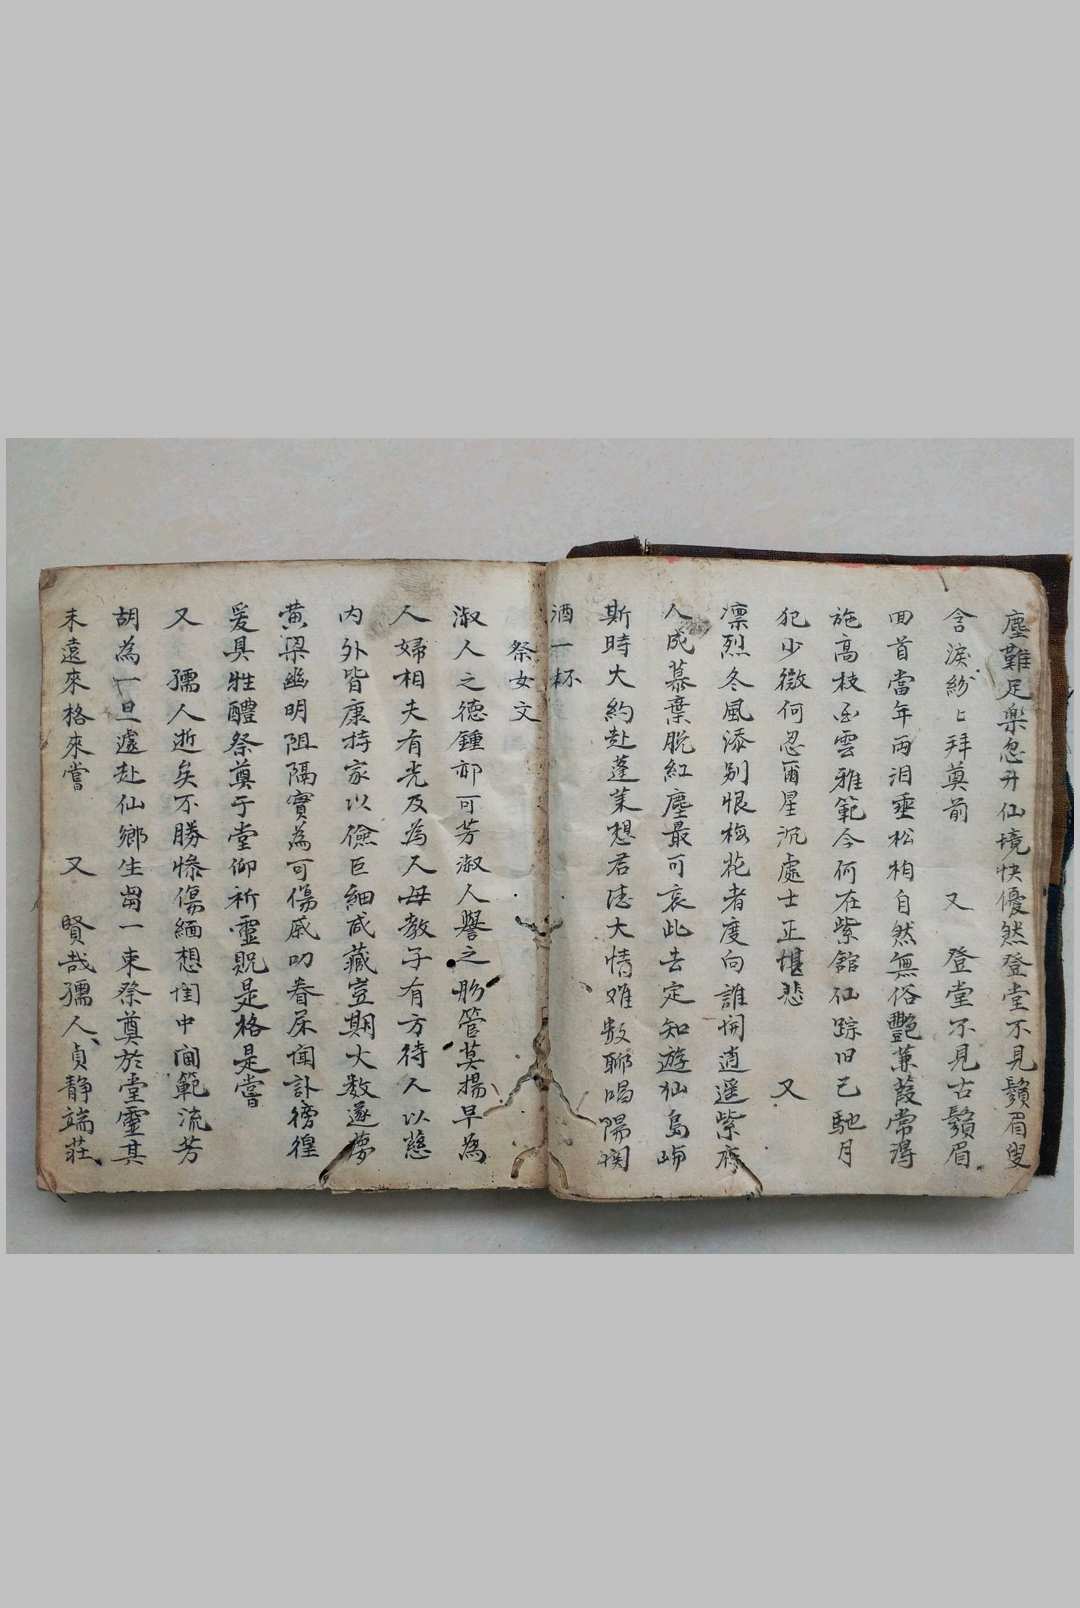 塵難足樂忽升仙境快優然登堂不見鬚眉叟
含淚紛々拜奠前　又　登堂不見古鬚眉
回首當年兩泪垂松柏自然無俗艷蒹葭常得
施高枝雲雅範今何在紫館仙踪旧已馳月
犯少微何忍爾星沉處士正堪悲　又
凛烈冬風添别恨梅花者度向誰開逍遥紫府
人成慕葉脱紅塵最可哀此去定知遊仙島
斯時大約赴蓬莱想君德大情难数聊唱陽関
酒一杯
祭女文
淑人之德鍾祁可芳淑人譽之彤管莫揚早為
人婦相夫有光及為人母教子有方待人以慈
内外皆康持家以儉巨細咸藏豈期大数遂夢
黄梁幽明阻隔實為可傷戚叨眷屎闻訃徬徨
爰具牲醴祭奠于堂仰祈靈貺是格是嘗
又　孺人逝矣不勝慘傷緬想閨中閫範流芳
胡為一旦遽赴仙鄉生芻一束祭奠於堂靈其
未遠來格來嘗　又　賢哉孺人貞静端莊